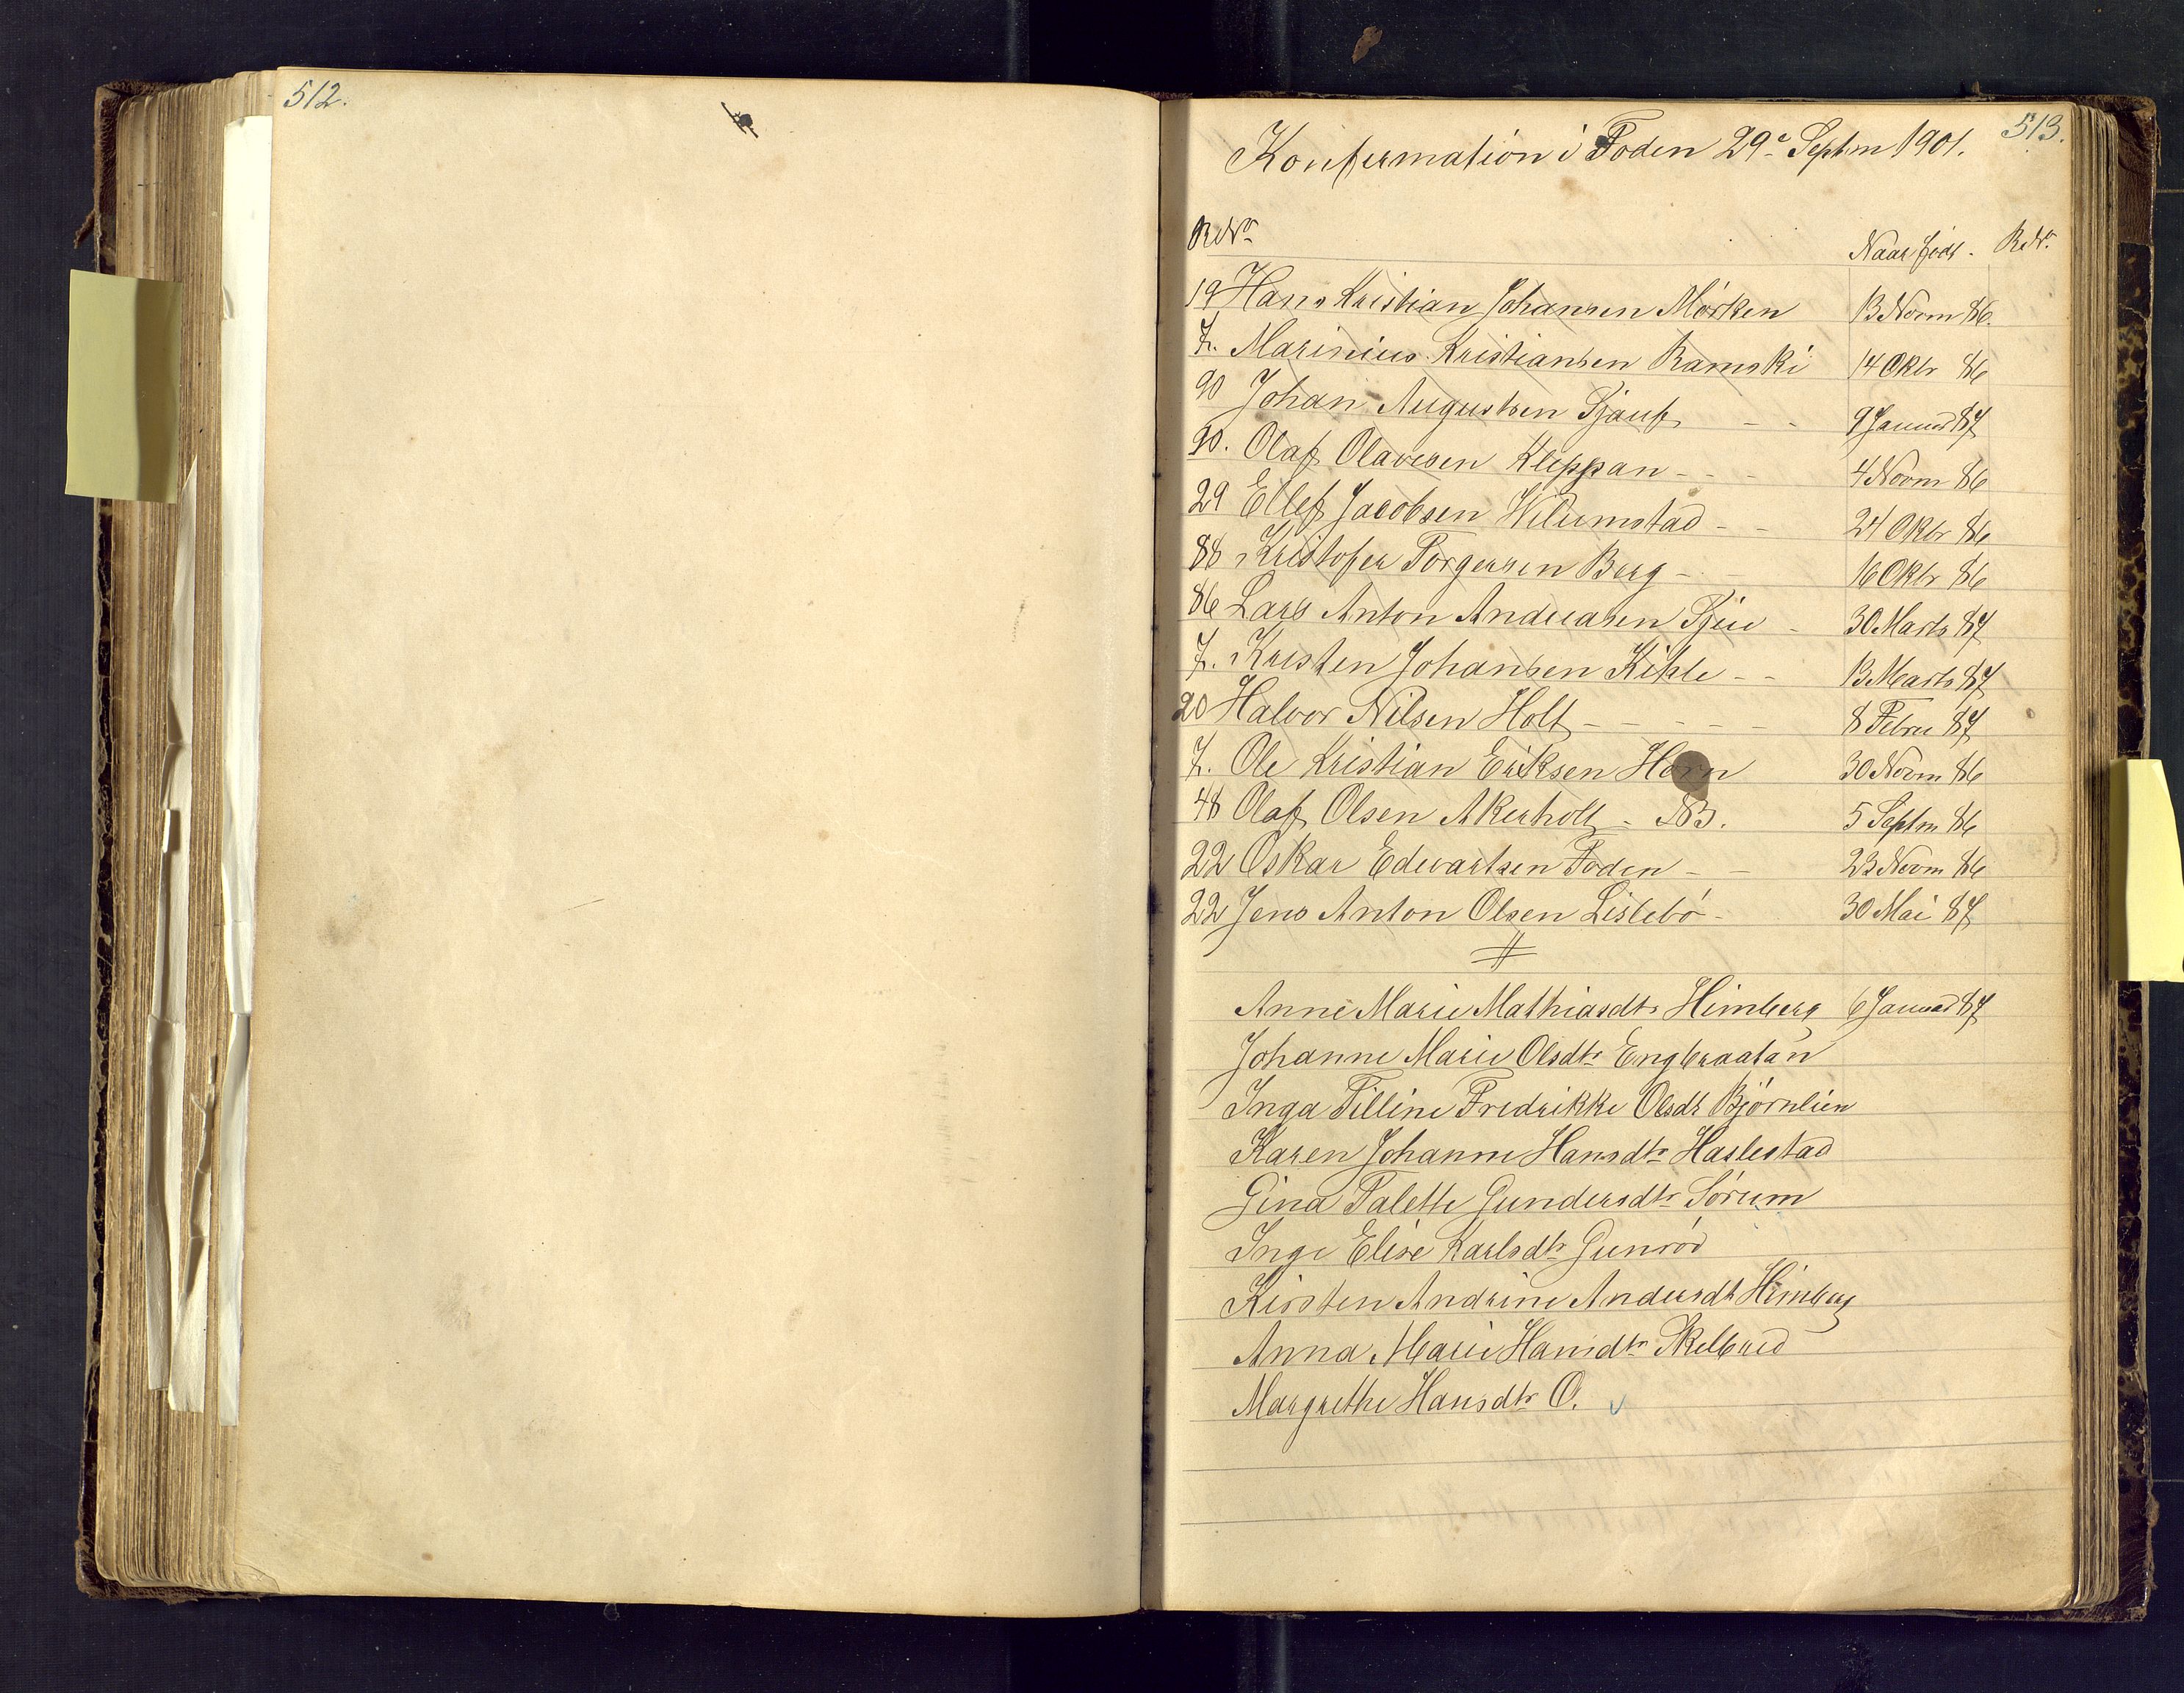 512.
513.
Konfirmation i Foden 29e Septm 1901.
RdNo Naar födt. RdNr.
19 Hans Kristian Johansen Mörken 13 Novm 86.
7. Marinius Kristiansen Ramski 14 Oktr 86
90 Johan Augustsen Sjauf - - 9 Januar 87
90. Olaf Olavesen Kleppan - - - 4 Novm 86
29 Ellef Jacobsen Wilumstad - - 24 Oktr 86
88 Kristofer Torgersen Berg - - 16 Oktr 86
86 Lars Anton Andreasen - 30 Marts 87
7. Kristen Johansen Kihle - - 13 Marts 87
20 Halvor Nilsen Holt - - - - - 8 Febru 87
7. Ole Kristian Eriksen Horn 30 Novm 86
48 Olaf Olsen Akerholt - NB. 5 Septm 86
22 Oskar Edevartsen Foden - - 23 Novm 86
22 Jens Anton Olsen Lislebö - 30 Mai 87
Anne Marie Mathiasdtr Himberg 6 Januar 87
Johanne Marie Olsdtr Engbraatan
Inga Tilline Fredrikke Olsdt Björnlien
Karen Johanne Hansdtr Haslestad
Gina Palette Gundersdtr Sörum
Inge Elise Karlsdtr Gunröd
Kirsten Andrine Andersdt Himberg
Anna Marie Hansdtr Skelbred
Margrethe Hansdtr O.